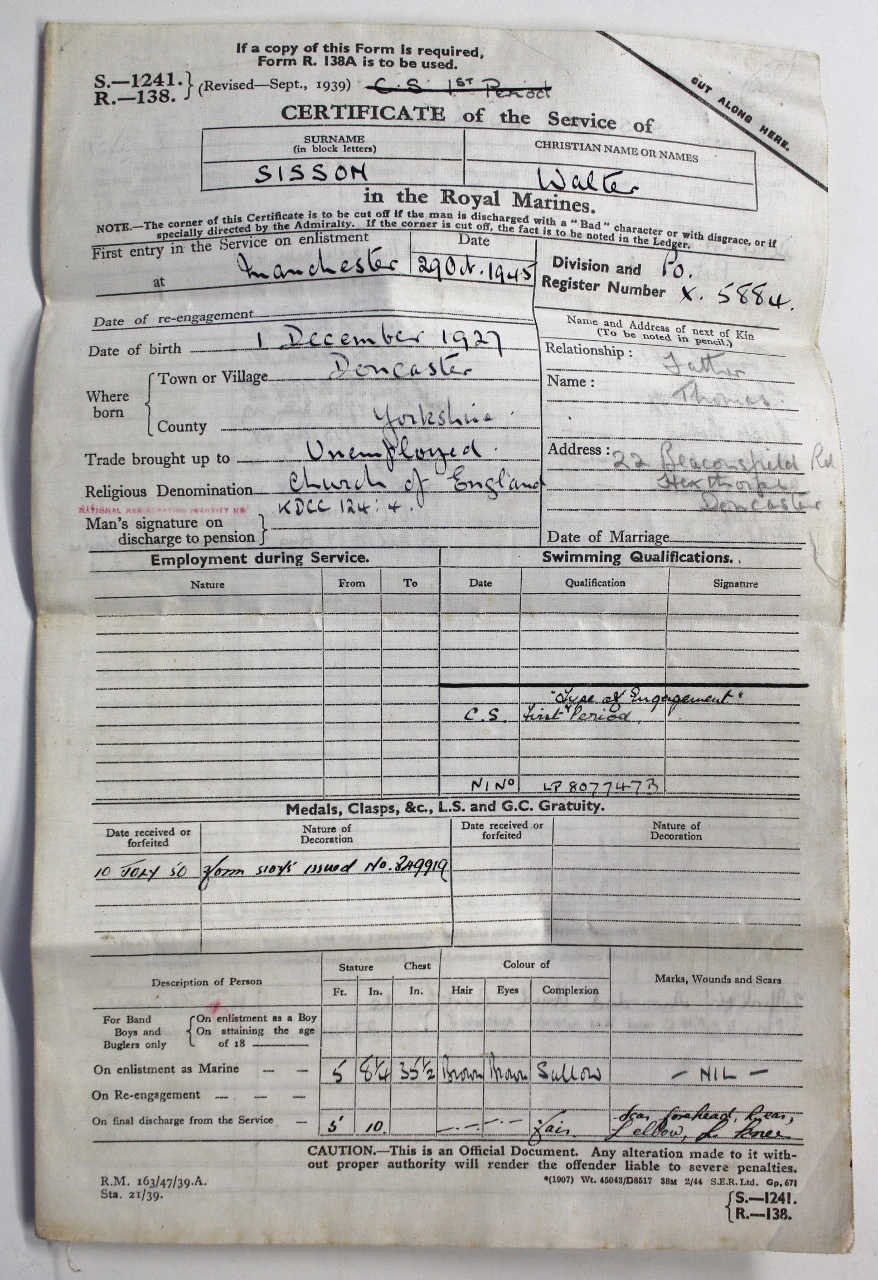 If a copy of this Form is required,
Form R. 138A is to be used.
S.—1241.
R.—138.
(Revised—Sept., 1939) C.S. 1ST Period
CUT ALONG HERE.
CERTIFICATE of the Service of
SURNAME
(in block letters)
CHRISTIAN NAME OR NAMES
SISSON
Walter
in the Royal Marines.
NOTE.—The corner of this Certificate is to be cut off if the man is discharged with a "Bad" character or with disgrace, or if
specially directed by the Admiralty. If the corner is cut off, the fact is to be noted in the Ledger.
First entry in the Service on enlistment
Date
at Manchester 29 Oct. 1945
Division and Po.
Register Number X. 5884.
Date of re-engagement
Name and Address of next of Kin
(To be noted in pencil.)
Date of birth 1 December 1927
Relationship: Father
Where born
Town or Village Doncaster
Name: Thomas
County Yorkshire
Trade brought up to Unemployed.
Address: 22 Beaconsfield Rd
Religious Denomination Church of England
Hexthorpe
Doncaster
NATIONAL REGISTRATION IDENTITY No
KDCC 124:4.
Man's signature on
discharge to pension
Date of Marriage
Employment during Service.
Swimming Qualifications.
Nature From To
Date Qualification Signature
"Type of Engagement"
C.S. First Period.
N I No LP 807747B
Medals, Clasps, &c., L.S. and G.C. Gratuity.
Date received or
forfeited
Nature of
Decoration
Date received or
forfeited
Nature of
Decoration
10 JULY 50 Form issued No. 849919
Description of Person
Stature Chest Colour of Marks, Wounds and Scars
Ft. In. In. Hair Eyes Complexion
For Band
Boys and
Buglers only
On enlistment as a Boy
On attaining the age
of 18
On enlistment as Marine — — 5 8¼ 35½ Brown Brown Sallow – NIL –
On Re-engagement — — —
On final discharge from the Service — 5' 10. Fair. Scar forehead,
L elbow, L. Knee
CAUTION.—This is an Official Document. Any alteration made to it with-
out proper authority will render the offender liable to severe penalties.
R.M. 163/47/39.A.
Sta. 21/39.
*(1907) Wt. 45043/D8517 38M 2/44 S.E.R. Ltd. Gp. 671
S.—1241.
R.—138.